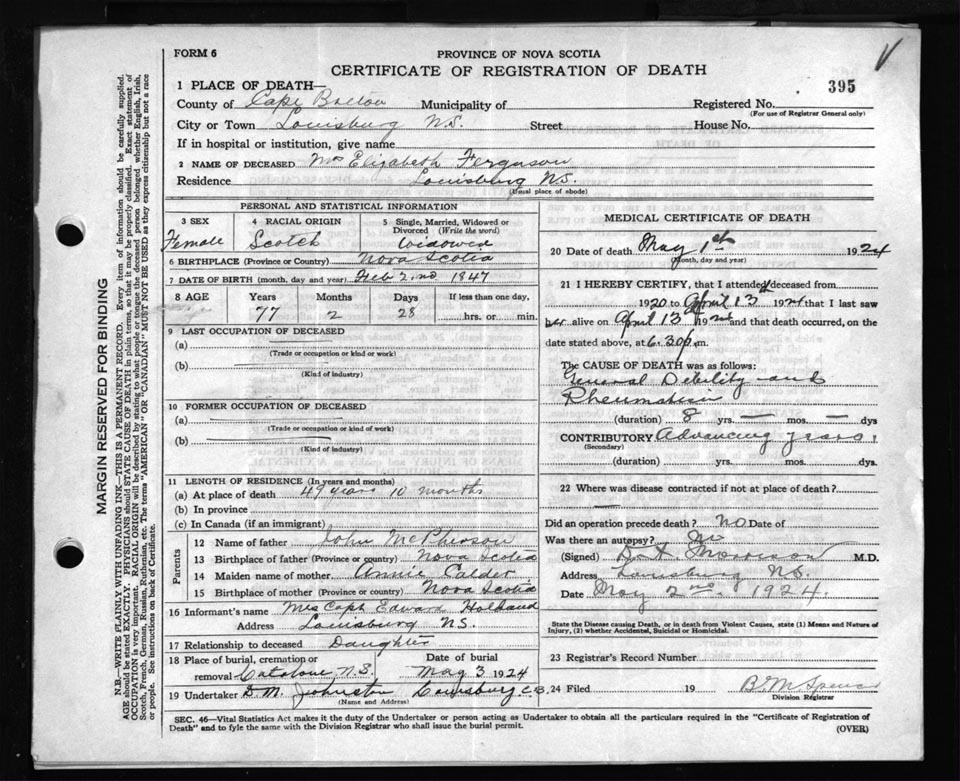 FORM 6
PROVINCE OF NOVA SCOTIA
CERTIFICATE OF REGISTRATION OF DEATH
395
1 PLACE OF DEATH—
County of Cape Breton Municipality of Registered No.
(For use of Registrar General only)
City or Town Louisburg N.S. Street House No.
If in hospital or institution, give name
2 NAME OF DECEASED Mrs Elizabeth Ferguson
Residence Louisburg N.S.
(Usual place of abode)
PERSONAL AND STATISTICAL INFORMATION
3 SEX 4 RACIAL ORIGIN 5 Single, Married, Widowed or Divorced (Write the word)
Female Scotch Widowed
6 BIRTHPLACE (Province or Country) Nova Scotia
7 DATE OF BIRTH (month, day and year) Feb 2nd 1847
8 AGE Years Months Days If less than one day,
77 2 28 hrs. or min.
9 LAST OCCUPATION OF DECEASED
(a)
(Trade or occupation or kind or work)
(b)
(Kind of industry)
10 FORMER OCCUPATION OF DECEASED
(a)
(Trade or occupation or kind of work)
(b)
(Kind of industry)
11 LENGTH OF RESIDENCE (In years and months)
(a) At place of death 49 years 10 months
(b) In province
(c) In Canada (if an immigrant)
Parents
12 Name of father John McPherson
13 Birthplace of father (Province or country) Nova Scotia
14 Maiden name of mother Annie Calder
15 Birthplace of mother (Province or country) Nova Scotia
16 Informant's name Mrs Capt Edward Holland
Address Louisburg N.S.
17 Relationship to deceased Daughter
18 Place of burial, cremation or removal Catalone N.S. Date of burial May 3 1924
19 Undertaker D.M. Johnston Louisburg C.B.
(Name and Address)
MEDICAL CERTIFICATE OF DEATH
20 Date of death May 1st 1924
(Month, day and year)
21 I HEREBY CERTIFY, that I attended deceased from
1920 to April 13th 1924 that I last saw
her alive on April 13 1924 and that death occurred, on the
date stated above, at 6.30 p.m.
The CAUSE OF DEATH was as follows:
General Debility and
Rheumatism
(duration) 8 yrs. — mos. — dys
CONTRIBUTORY Advancing years
(Secondary)
(duration) yrs. mos. dys.
22 Where was disease contracted if not at place of death?
Did an operation precede death? no Date of
Was there an autopsy? no
(Signed) Morrison M.D.
Address Louisburg N.S.
Date May 2nd 1924.
State the Disease causing Death, or in death from Violent Causes, state (1) Means and Nature of
Injury, (2) whether Accidental, Suicidal or Homicidal.
23 Registrar's Record Number
24 Filed 19
Division Registrar
SEC. 46—Vital Statistics Act makes it the duty of the Undertaker or person acting as Undertaker to obtain all the particulars required in the "Certificate of Registration of
Death" and to fyle the same with the Division Registrar who shall issue the burial permit.
(OVER)
MARGIN RESERVED FOR BINDING
N.B.—WRITE PLAINLY WITH UNFADING INK—THIS IS A PERMANENT RECORD. Every item of information should be carefully supplied.
AGE should be stated EXACTLY. PHYSICIANS should STATE CAUSE OF DEATH in plain terms, so that it may be properly classified. Exact statement of
OCCUPATION is very important. RACIAL ORIGIN will be described by stating to what people or tongue the deceased person belonged whether English, Irish,
Scotch, French, German, Russian, Ruthenian, etc. The terms "AMERICAN" OR "CANADIAN" MUST NOT BE USED as they express citizenship but not a race
or people. See instructions on back of Certificate.